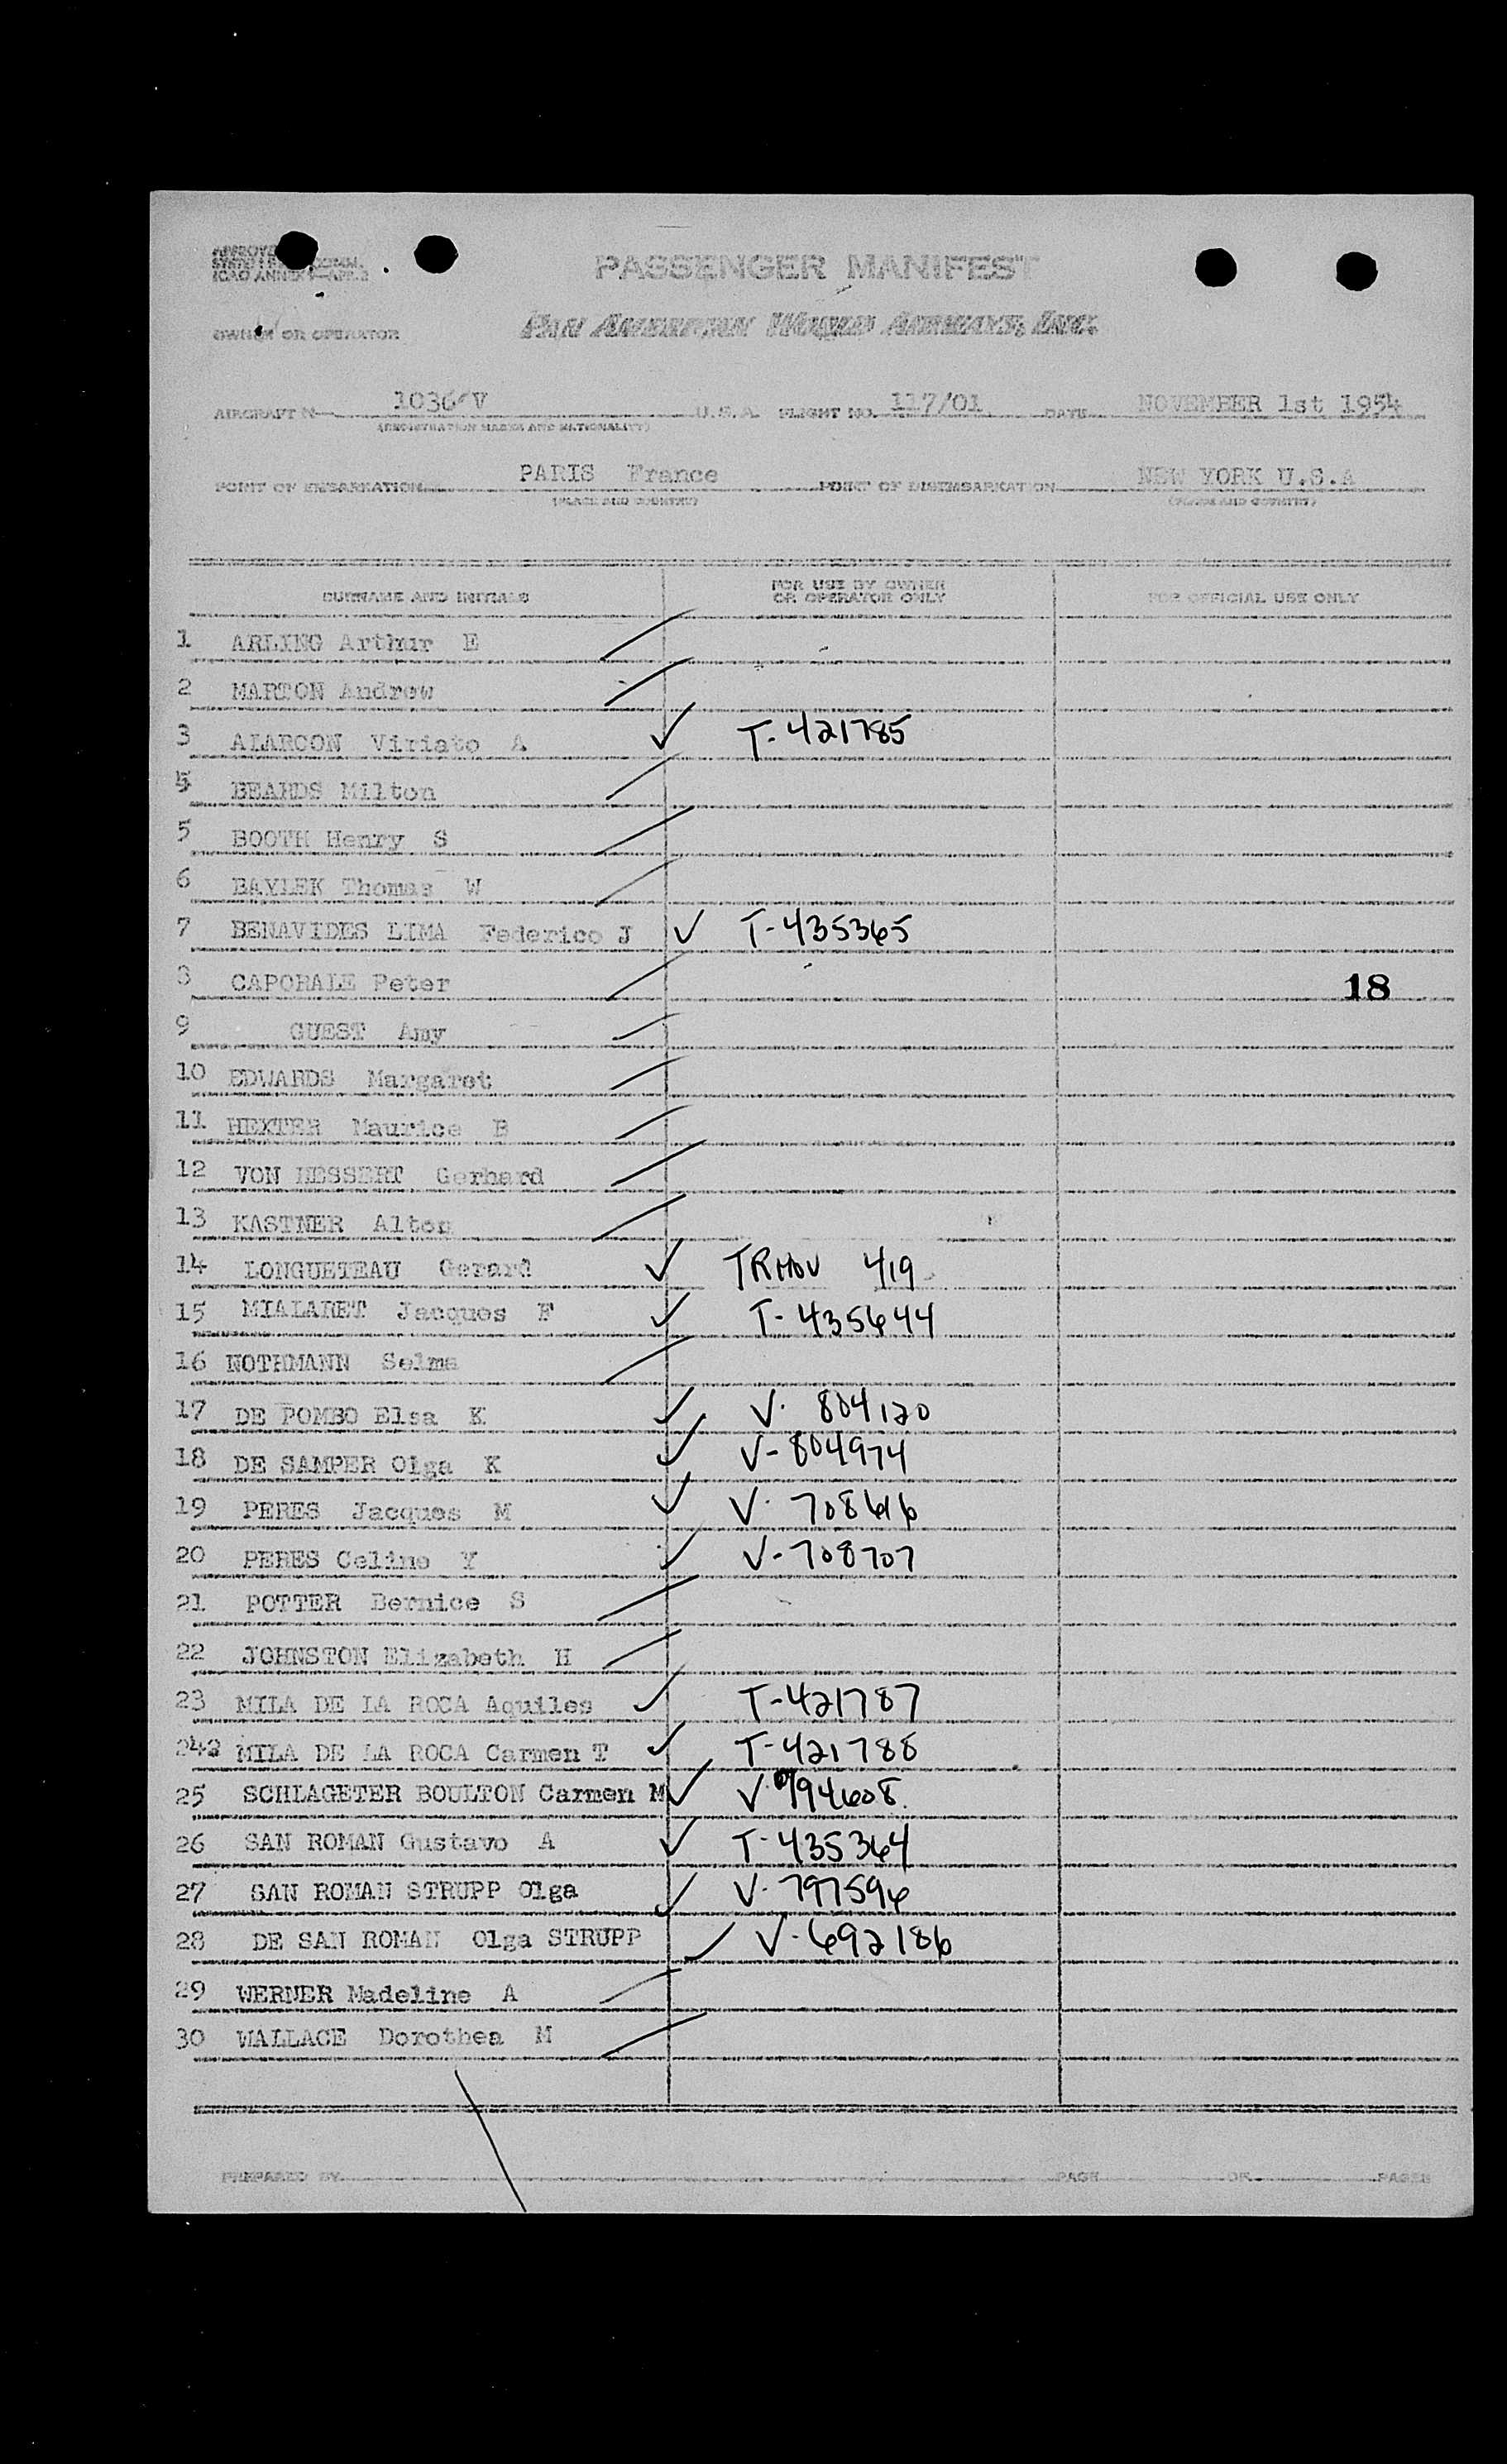 PASSENGER MANIFEST
OWNER OR OPERATOR PAN AMERICAN WORLD AIRWAYS, INC.
AIRCRAFT N 1036 V U.S.A. FLIGHT NO. 117/01 DATE NOVEMBER 1st 1954
(REGISTRATION MARKS AND NATIONALITY)
POINT OF EMBARKATION PARIS France POINT OF DISEMBARKATION NEW YORK U.S.A
(PLACE AND COUNTRY) (PLACE AND COUNTRY)
SURNAME AND INITIALS FOR USE BY OWNER OR OPERATOR ONLY FOR OFFICIAL USE ONLY
1 ARLING Arthur E
2 MARTON Andrew
3 ALARCON Viriato A T-421785
4 BEARDS Milton
5 BOOTH Henry S
6 Thomas W
7 BENAVIDES LIMA Federico J T-435365
8 CAPORALE Peter
18
9 GUEST Amy
10 EDWARDS Margaret
11 HEXTER Maurice B
12 VON HESSERT Gerhard
13 KASTNER Alton
14 LONGUETEAU Gerard 419
15 MIALARET Jacques F T-435644
16 NOTHMANN Selma
17 DE POMBO Elsa K V- 804120
18 DE SAMPER Olga K V-804974
19 PERES Jacques M V- 708616
20 PERES Celine Y V-708707
21 POTTER Bernice S
22 JOHNSTON Elizabeth H
23 MILA DE LA ROCA Aquiles T-421787
24 MILA DE LA ROCA Carmen T T-421788
25 SCHLAGETER BOULTON Carmen M
26 SAN ROMAN Gustavo A T-435364
27 SAN ROMAN STRUPP Olga V-797596
28 DE SAN ROMAN Olga STRUPP V-692186
29 WERNER Madeline A
30 WALLACE Dorothea M
PREPARED BY PAGE OF PAGES